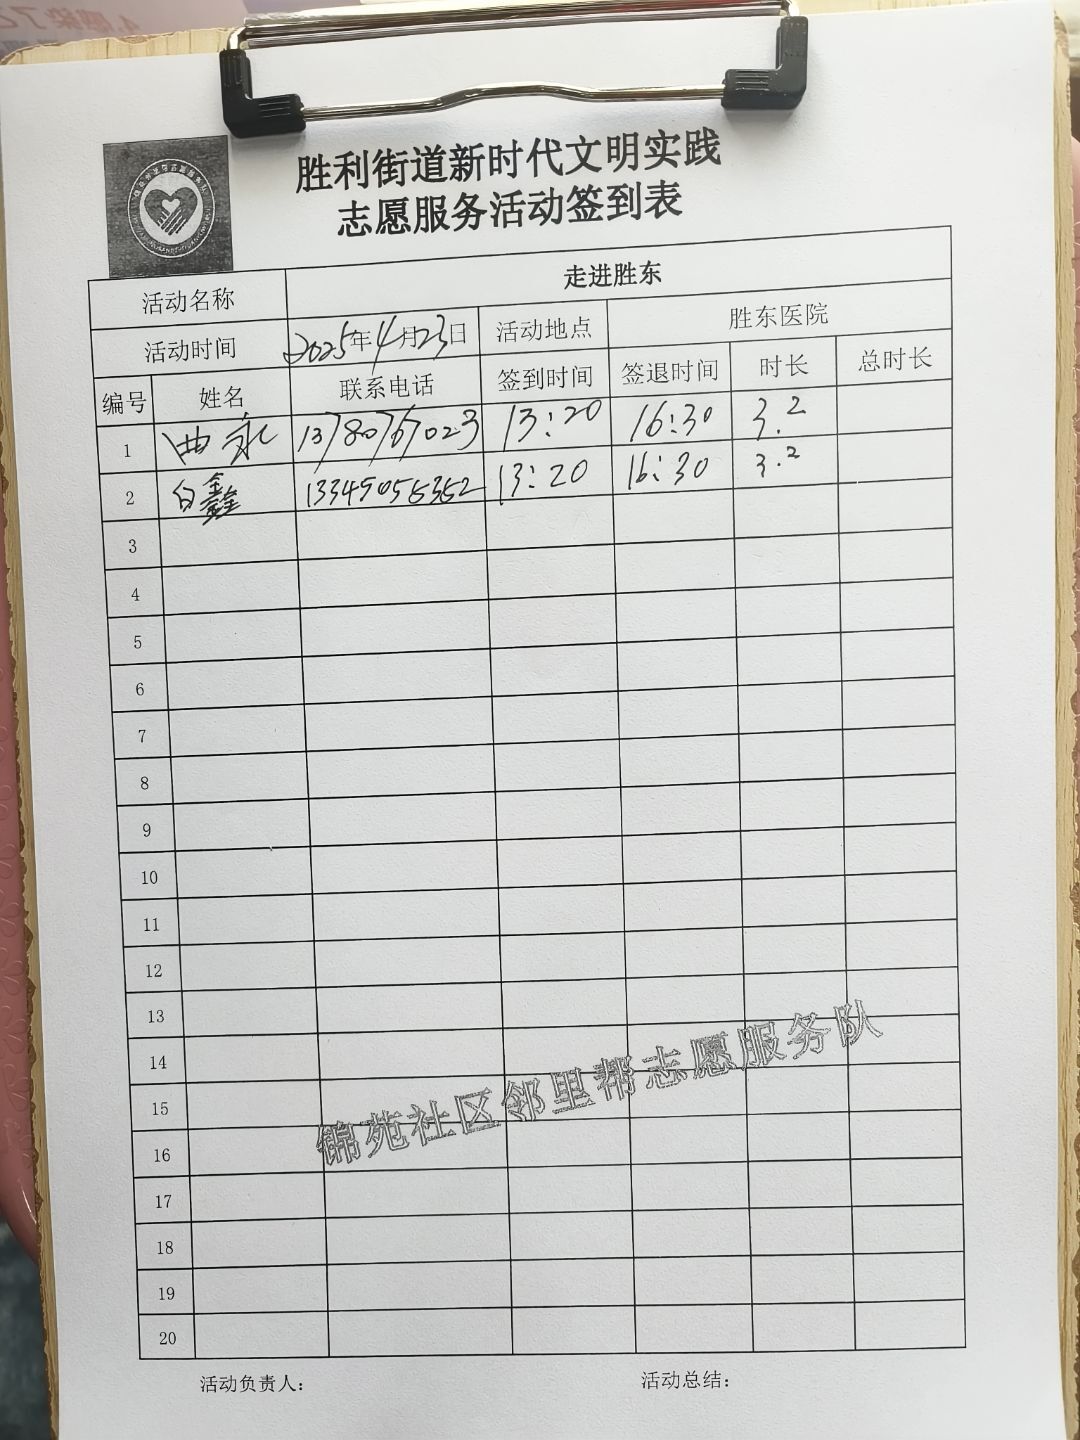 胜利街道新时代文明实践
志愿服务活动签到表
活动名称 走进胜东
活动时间 2025年4月23日 活动地点 胜东医院
编号 姓名 联系电话 签到时间 签退时间 时长 总时长
1 曲永 13780767023 13:20 16:30 3.2
2 白鑫 13345056352 13:20 16:30 3.2
3
4
5
6
7
8
9
10
11
12
13
14
15
16
17
18
19
20
锦苑社区邻里帮志愿服务队
活动负责人: 活动总结: